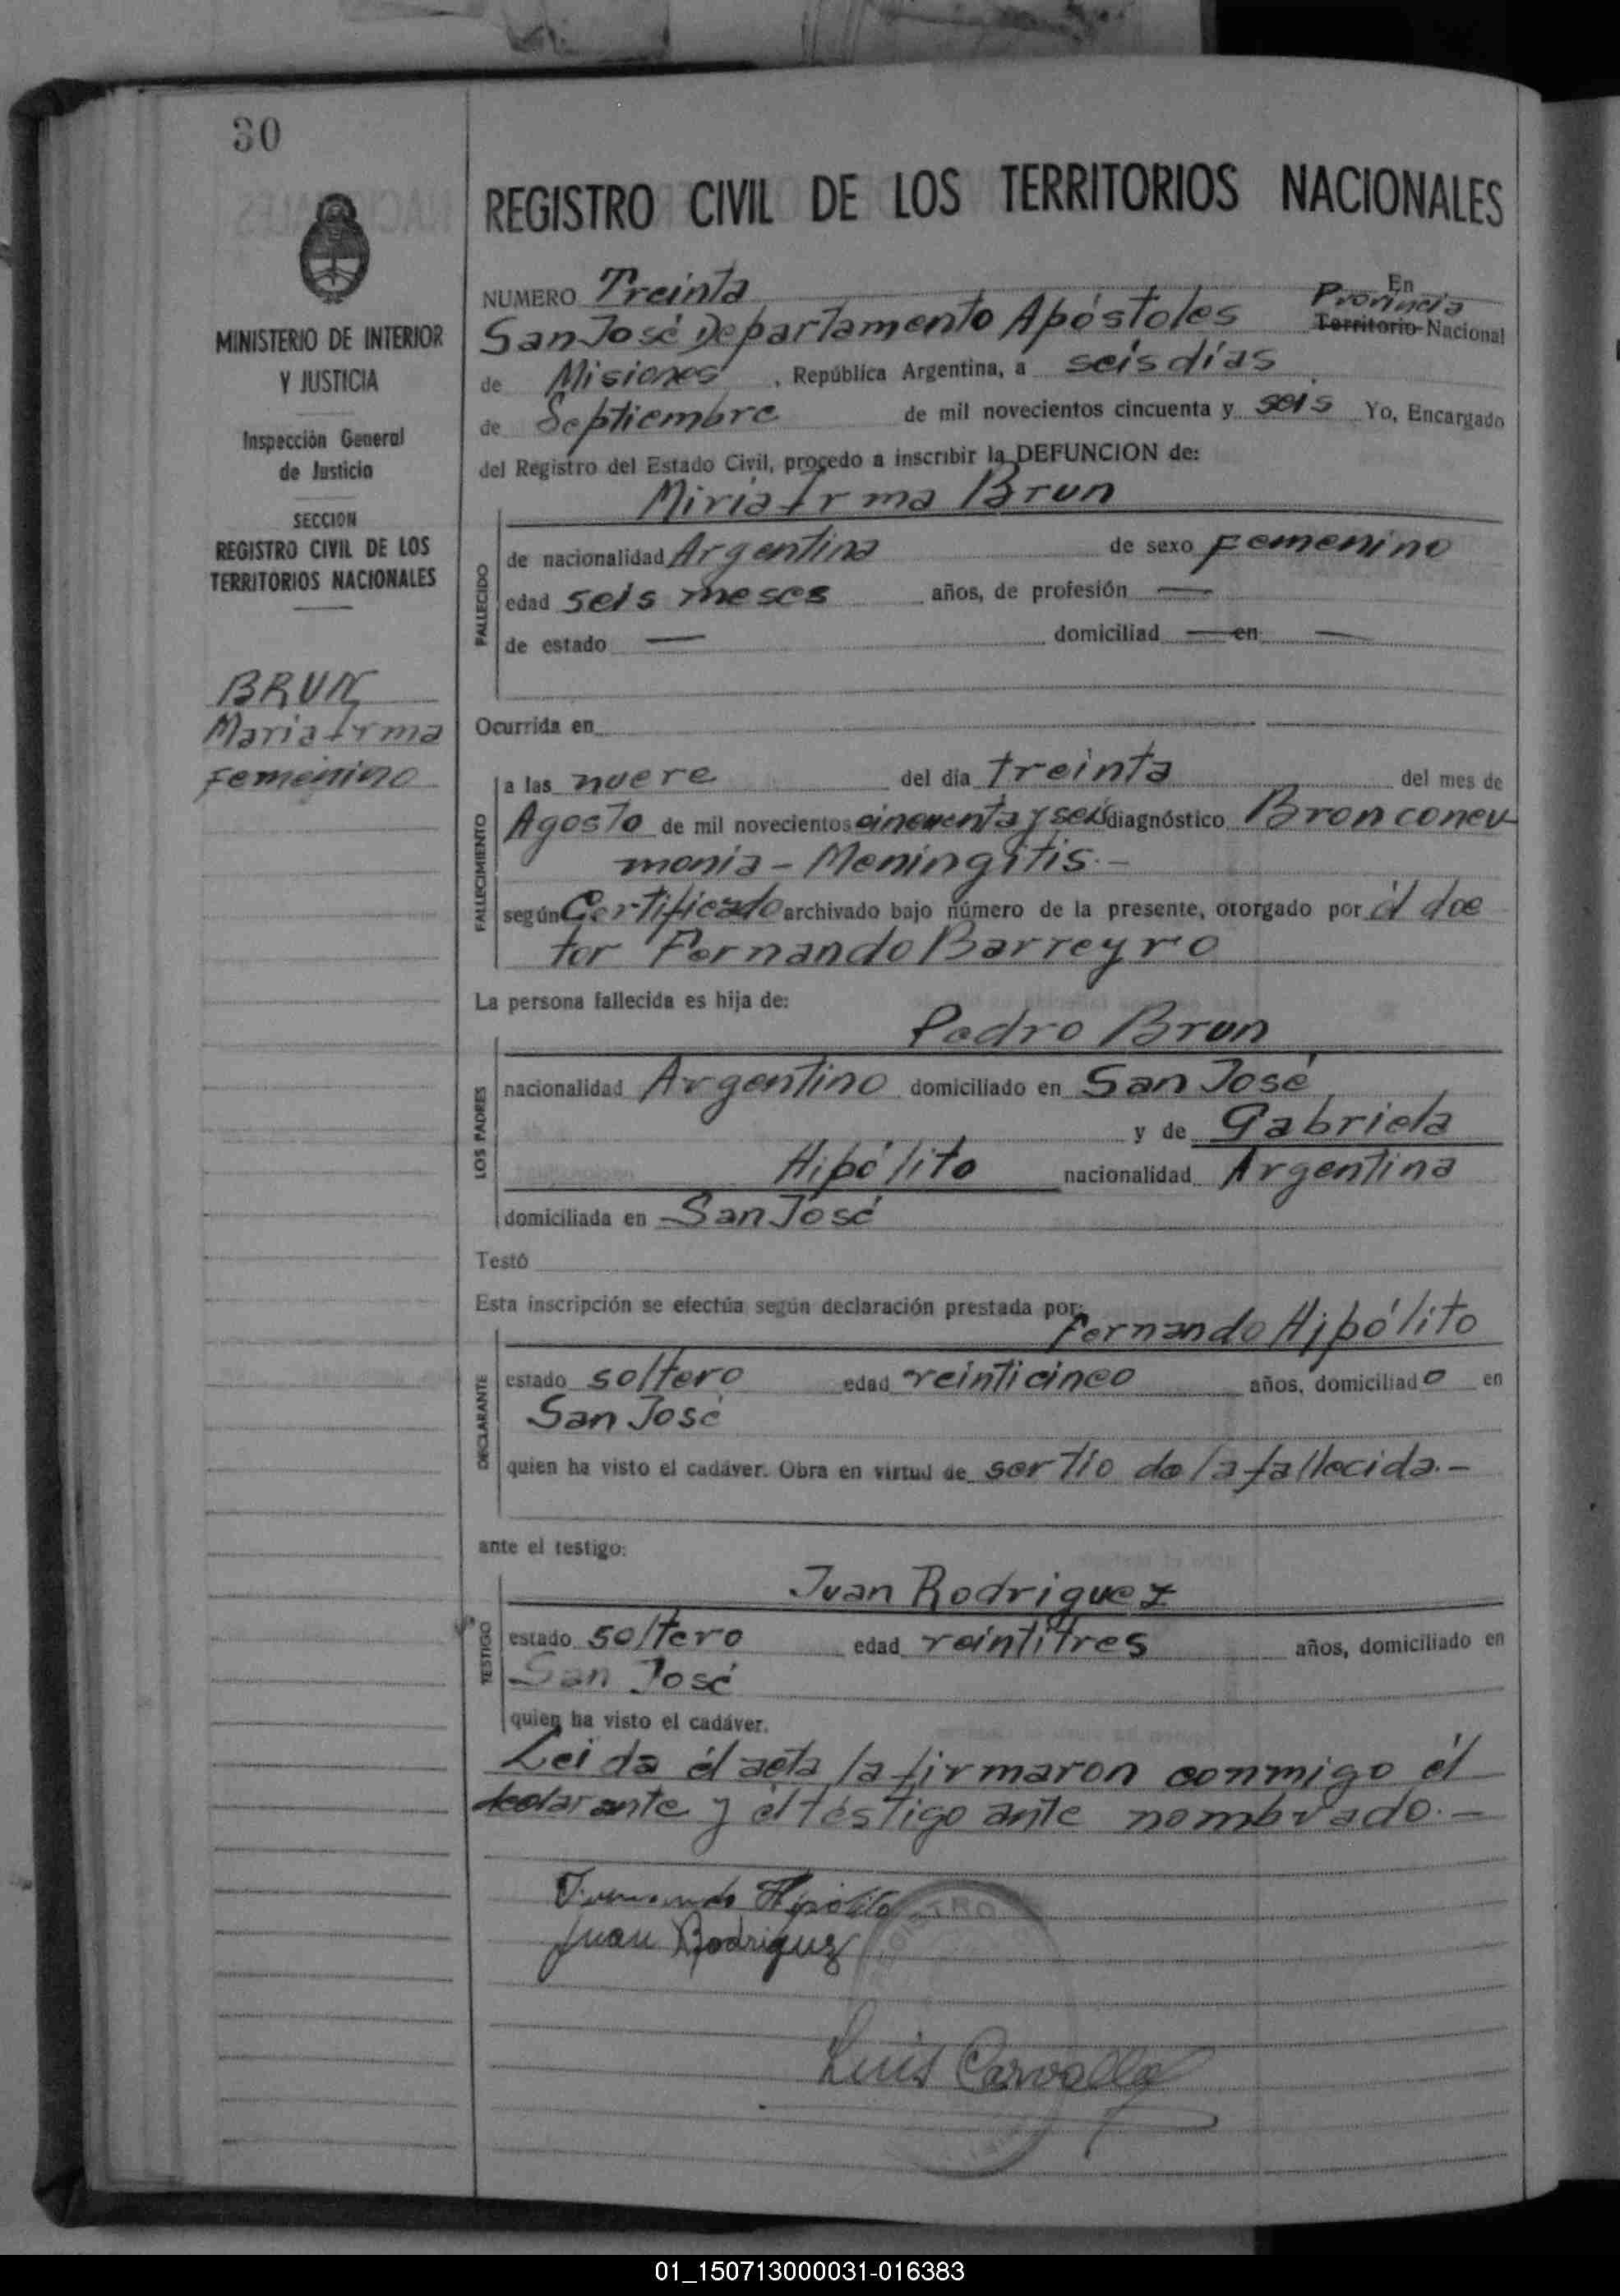 30
MINISTERIO DE INTERIOR
Y JUSTICIA
Inspección General
de Justicia
SECCION
REGISTRO CIVIL DE LOS
TERRITORIOS NACIONALES
BRUN
Maria Irma
Femenino
REGISTRO CIVIL DE LOS TERRITORIOS NACIONALES
NUMERO Treinta En
San José Departamento Apóstoles Provincia Territorio Nacional
de Misiones, República Argentina, a seis días
de Septiembre de mil novecientos cincuenta y seis Yo, Encargado
del Registro del Estado Civil, procedo a inscribir la DEFUNCION de:
Miria Irma Brun
FALLECIDO
de nacionalidad Argentina de sexo Femenino
edad seis meses años, de profesión —
de estado — domiciliad — en —
Ocurrida en
FALLECIMIENTO
a las nueve del día treinta del mes de
Agosto de mil novecientos cincuenta y seis diagnóstico Bronconeu
monia - Meningitis.-
según Certificado archivado bajo número de la presente, otorgado por él doc
tor Fernando Barreyro
La persona fallecida es hija de:
LOS PADRES
Pedro Brun
nacionalidad Argentino domiciliado en San José
y de Gabriela
Hipólito nacionalidad Argentina
domiciliada en San José
Testó
Esta inscripción se efectúa según declaración prestada por:
Fernando Hipólito
DECLARANTE
estado soltero edad veinticinco años, domiciliado en
San José
quien ha visto el cadáver. Obra en virtud de ser tío de la fallecida.-
ante el testigo:
TESTIGO
Juan Rodriguez
estado soltero edad veintitres años, domiciliado en
San José
quien ha visto el cadáver.
Leida él acta la firmaron conmigo él
declarante y él téstigo ante nombrado.-
Fernando Hipólito
Juan Rodriguez
Luis Carvallo
01_150713000031-016383